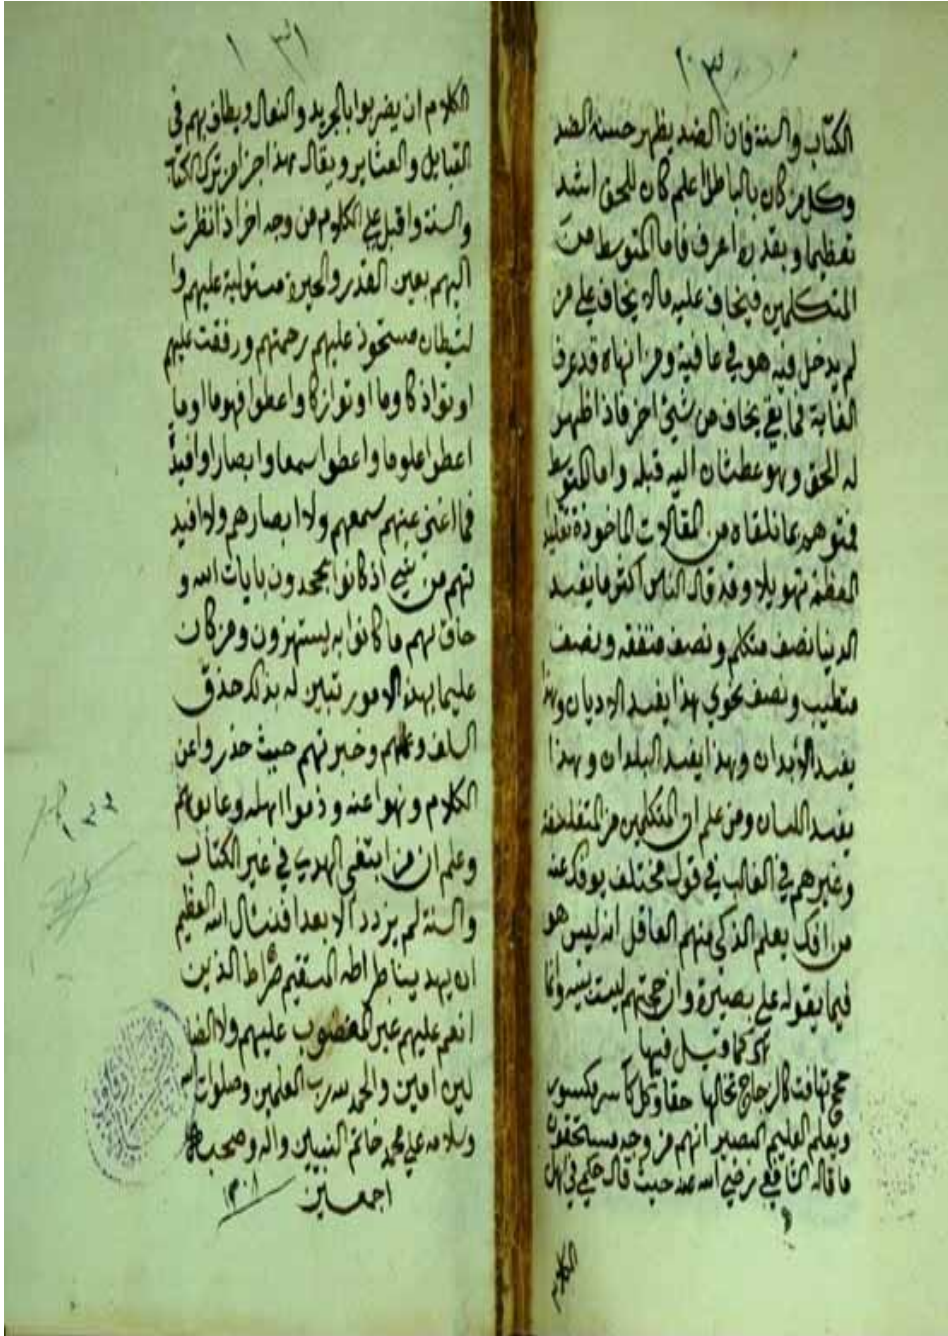 ١٣٠
الكتاب والسنة فان الضد يظهر حسنه الضد
وكل من كان بالباطل اعلم كان للحق اشد
تعظيما وبقدره اعرف فاما المتوسط من
المتكلمين فيخاف عليه مالا يخاف على من
لم يدخل فيه هو في عافية ومن انهاه قد عرف
الغاية فما بقي يخاف من شيئ اخر فاذا ظهر
له الحق وهو عطشان اليه قبله واما المتوسط
فمتوهم بما تلقاه من المقالات الماخوذة تقليدا
لمعظمه تهويلا وقد قال الناس اكثر ما يفسد
الدنيا نصف متكلم ونصف متفقه ونصف
متطيب ونصف نحوي هذا يفسد الاديان وهذا
يفسد الابدان وهذا يفسد البلدان وهذا
يفسد اللسان ومن علم ان المتكلمين من المتفلسفة
وغيرهم في الغالب في قول مختلف يوفك عنه
من افك يعلم الذكي منهم العاقل انه ليس هو
فيما يقوله على بصيرة وان حجتهم ليست ببينة وانما
هي كما قيل فيها
حجج تهافت كالزجاج تخالها حقا وكل كاسر مكسور
ويعلم العليم البصير انهم من وجه مستحقون
ما قاله الشافعي رضي الله عنه حيث قال حكمي في اهل
الكلام
١٣١
الكلام ان يضربوا بالجريد والنعال ويطاف بهم في
القبايل والعشاير ويقال هذا جزا من ترك الكتاب
والسنة واقبل على الكلام من وجه اخر اذا نظرت
اليهم بعين القدر والحيرة مستولية عليهم وا
لشيطان مستحوذ عليهم رحمتهم ورفقت عليهم
اوتوا ذكا وما اوتوا زكا واعطوا فهوما وما
اعطوا علوما واعطوا سمعا وابصارا وافيدة
فما اغنى عنهم سمعهم ولا ابصارهم ولا افيد
تهم من شيئ اذ كانوا يجحدون بايات الله و
حاق بهم ما كانوا به يستهزون ومن كان
عليما بهذه الامور تبين له بذلك حذق
السلف وعلمهم وخبرتهم حيث حذروا عن
الكلام ونهوا عنه وذموا اهله وعابوهم
وعلم ان من ابتغى الهدى في غير الكتاب
والسنة لم يزدد الا بعدا فنسال الله العظيم
ان يهدينا صراطه المستقيم صراط الذين
انعم عليهم غير المغضوب عليهم ولا الضا
لين امين والحمد لله رب العلمين وصلوات الله
وسلامه على محمد خاتم النبيين واله وصحبه
اجمعين